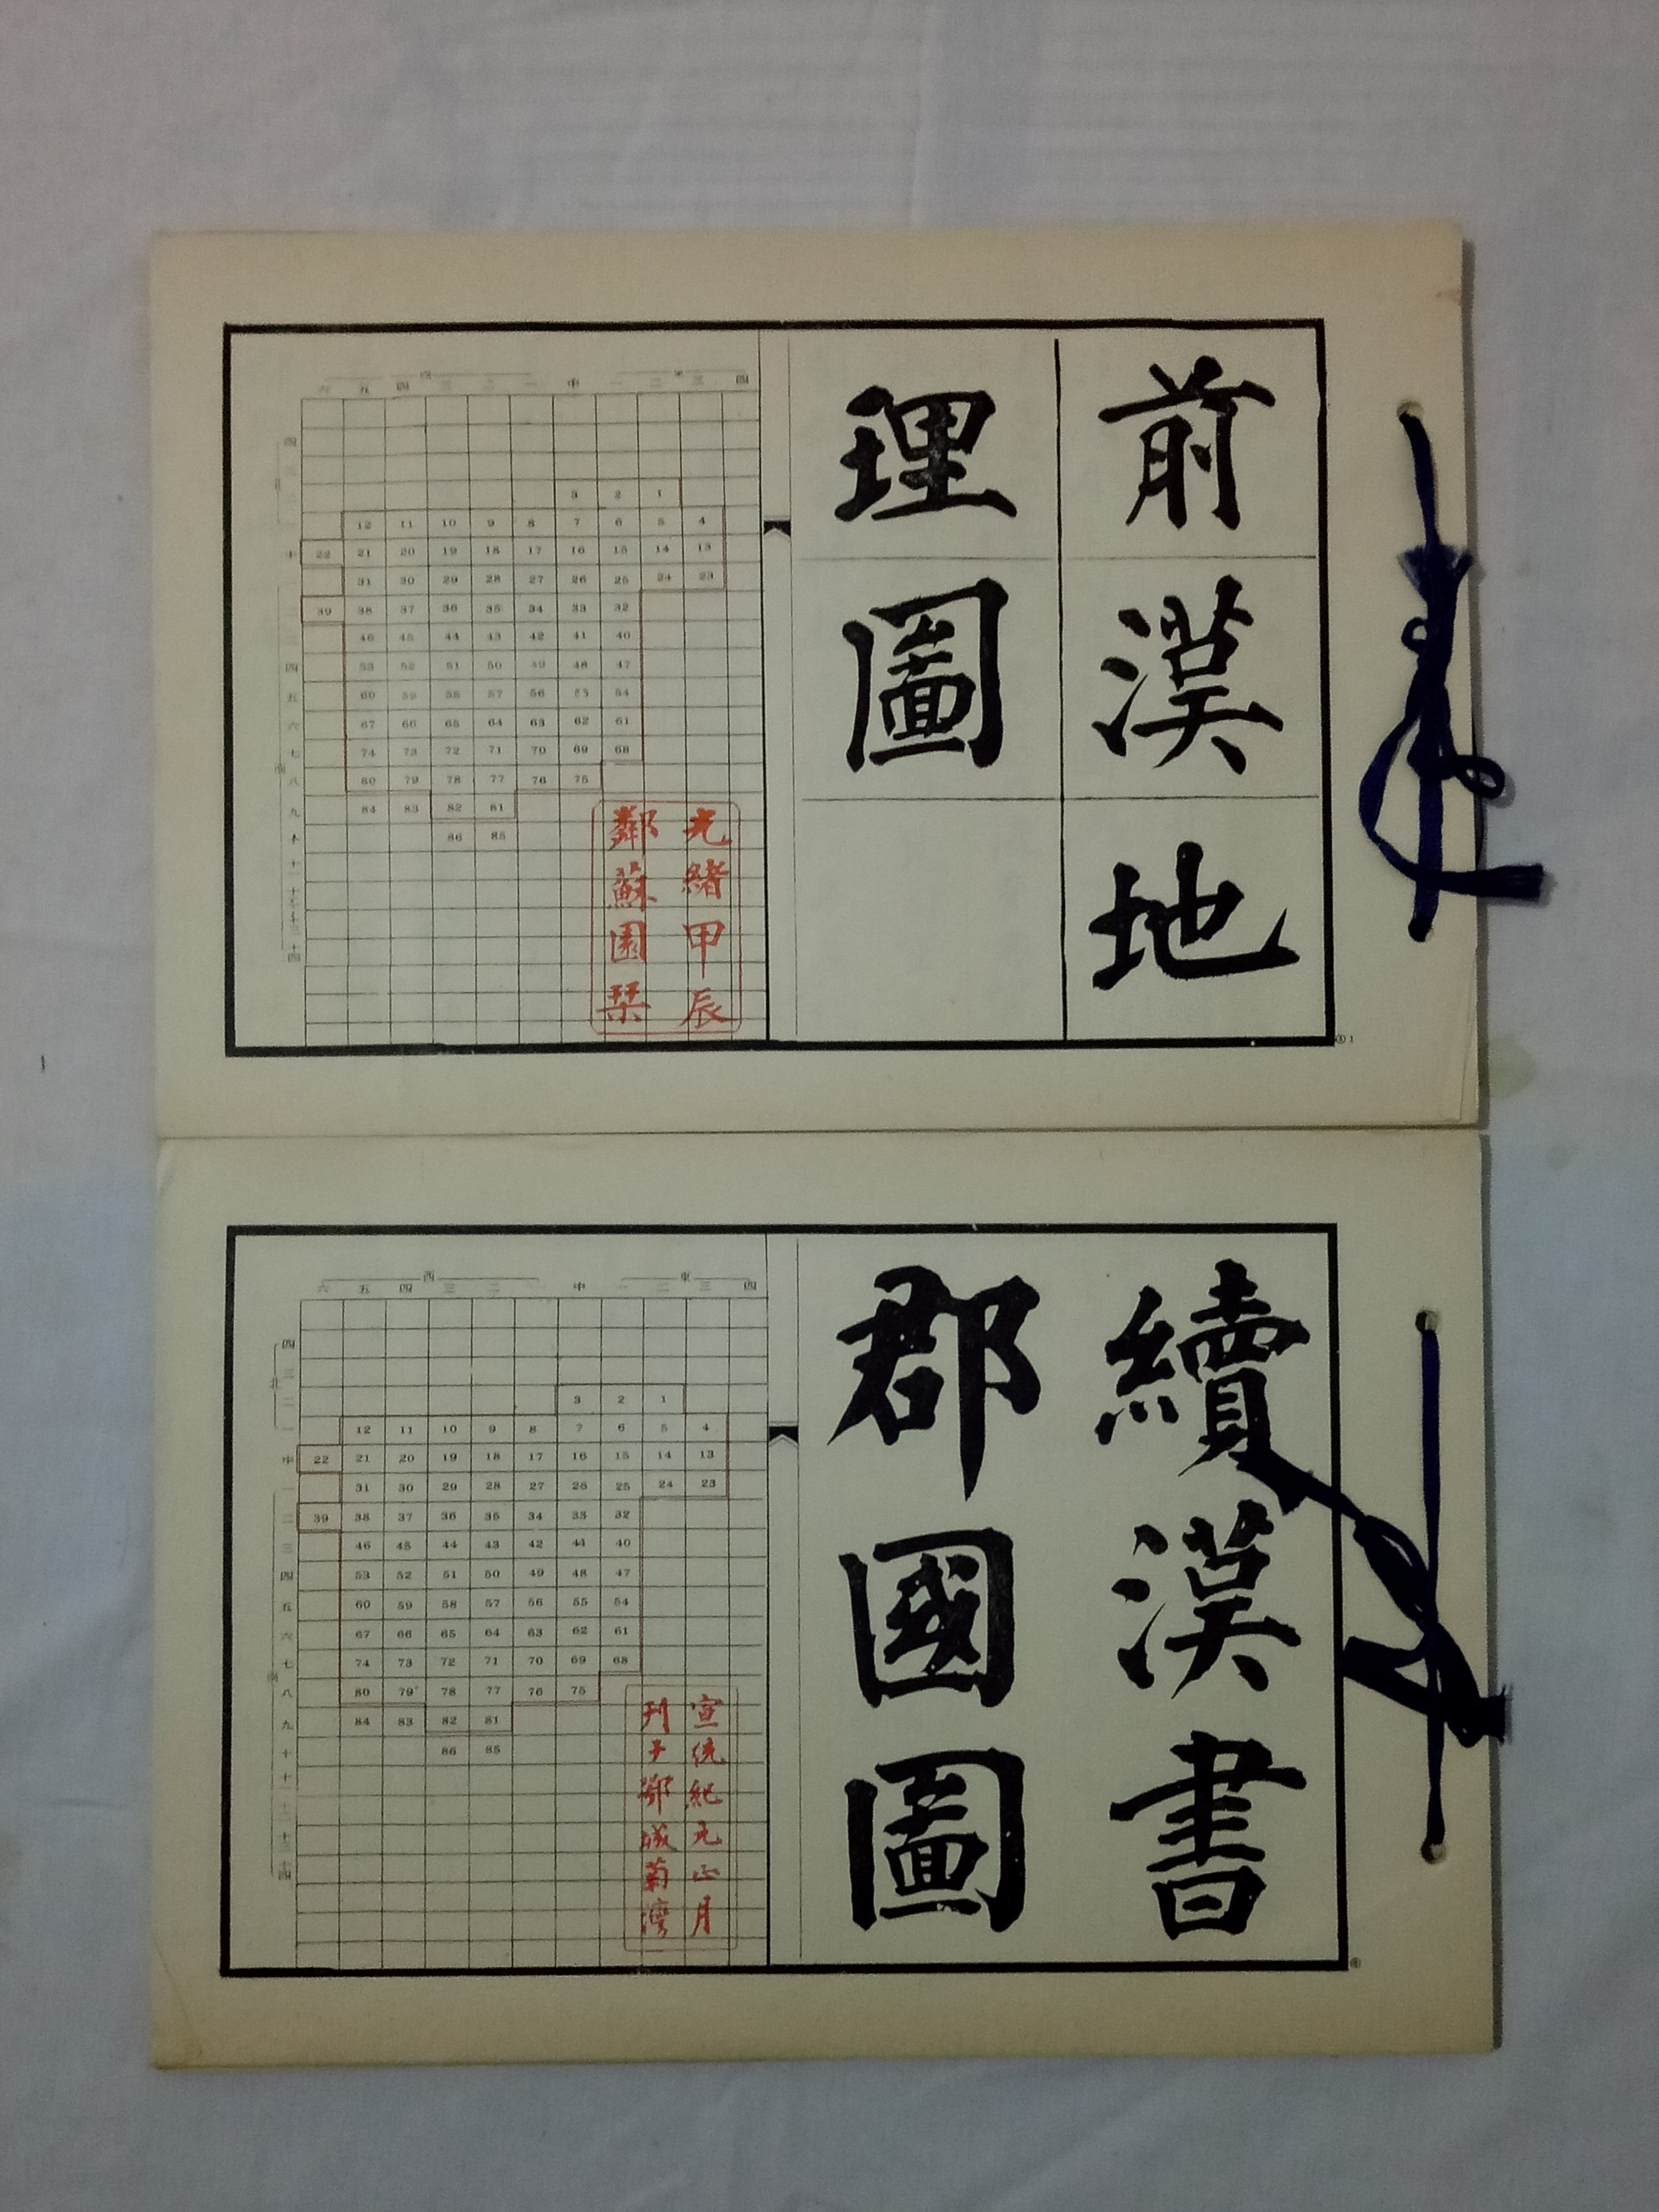 前漢地
理圖
光緒甲辰
鄰蘇園栞
六 五 四 西 三 二 一 中 一 二 東 三 四
3 2 1
12 11 10 9 8 7 6 5 4
22 21 20 19 18 17 16 15 14 13
31 30 29 28 27 26 25 24 23
39 38 37 36 35 34 33 32
46 45 44 43 42 41 40
53 52 51 50 49 48 47
60 59 58 57 56 55 54
67 66 65 64 63 62 61
74 73 72 71 70 69 68
80 79 78 77 76 75
84 83 82 81
86 85
續漢書
郡國圖
宣統紀元正月
刊于鄂城菊灣
六 五 四 西 三 二 一 中 一 二 東 三 四
3 2 1
12 11 10 9 8 7 6 5 4
22 21 20 19 18 17 16 15 14 13
31 30 29 28 27 26 25 24 23
39 38 37 36 35 34 33 32
46 45 44 43 42 41 40
53 52 51 50 49 48 47
60 59 58 57 56 55 54
67 66 65 64 63 62 61
74 73 72 71 70 69 68
80 79 78 77 76 75
84 83 82 81
86 85